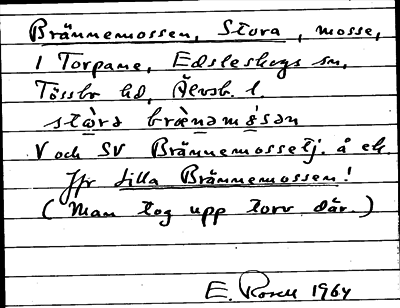 Brännemossen, Stora, mosse,
1 Torpane, Edsleskogs sn,
Tössbo hd, Älvsb. l.
stɷ̀rə bræ̀nəmɷ̀sən
V och SV Brännemossetj. å ek.
Jfr Lilla Brännemossen!
(Man tog upp torv där.)
E. Rosell 1964